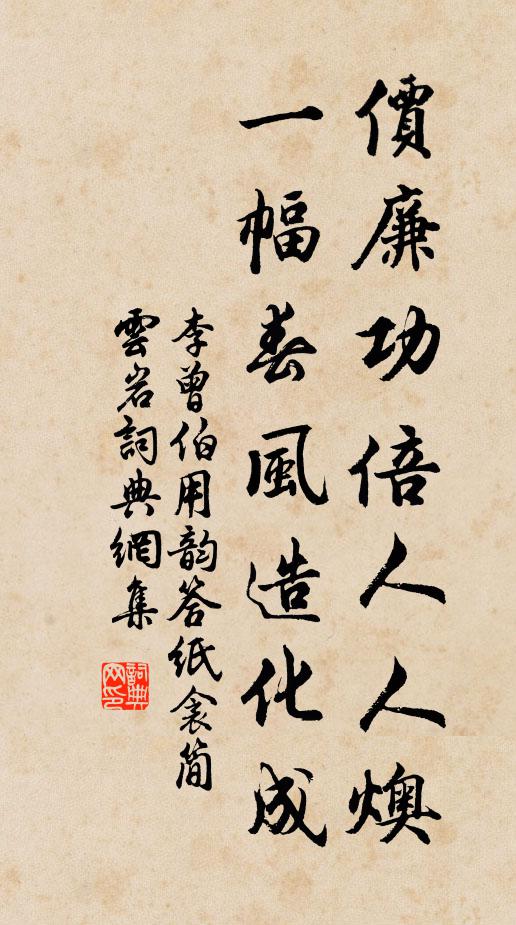 價廉功倍人人燠
一幅春風造化成
李曾伯用韵答紙衾簡
雲岩詞典網集
詞典網印